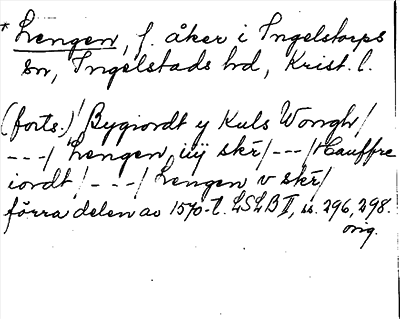 * Lengen, f. åker i Ingelstorps
sn, Ingelstads hd, Krist. l.
(forts.) / Bygiordt y Kuls Wongh /
---/ Lengen iiij skr̄/ ---/ Hauffre
iordt / ---/ Lengen v skr̄/
förra delen av 1570-t. LSLB II, s. 296, 298.
orig.